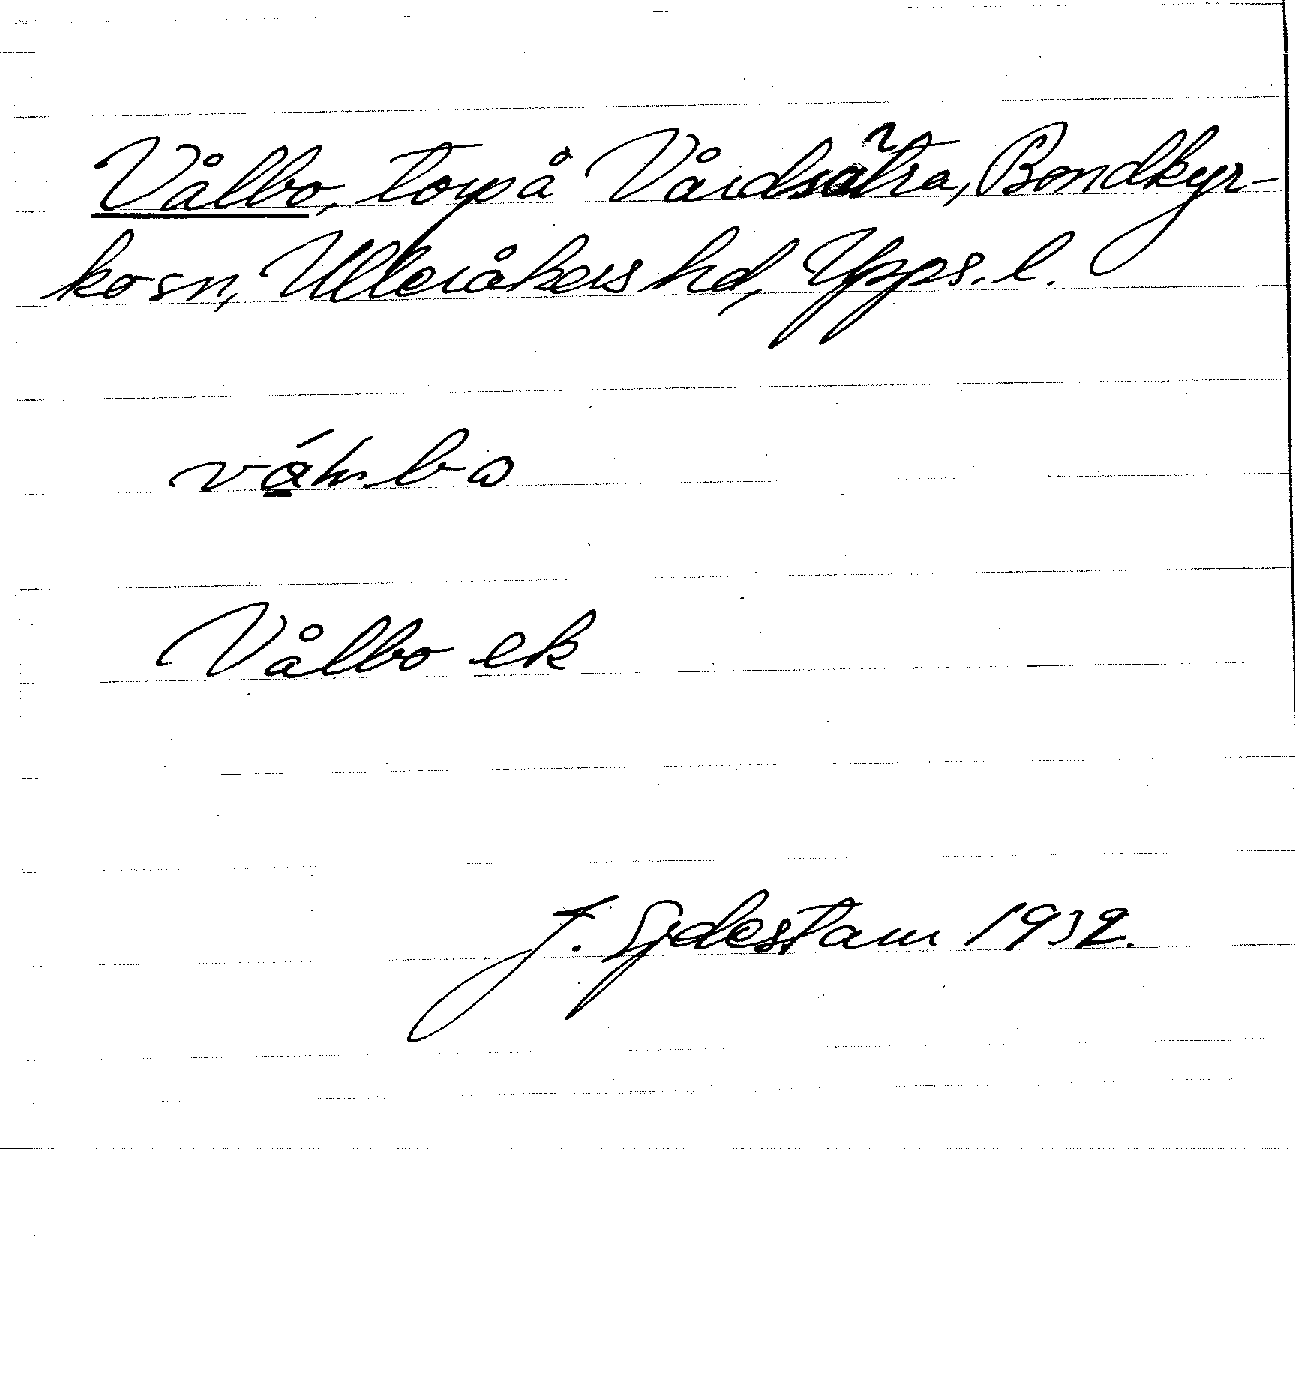 Vålbo, torp å Vårdsätra, Bondkyr-
kosn, Ulleråkers hd, Upps. l.
Vålbo ek
J. Sjdestam 1932.